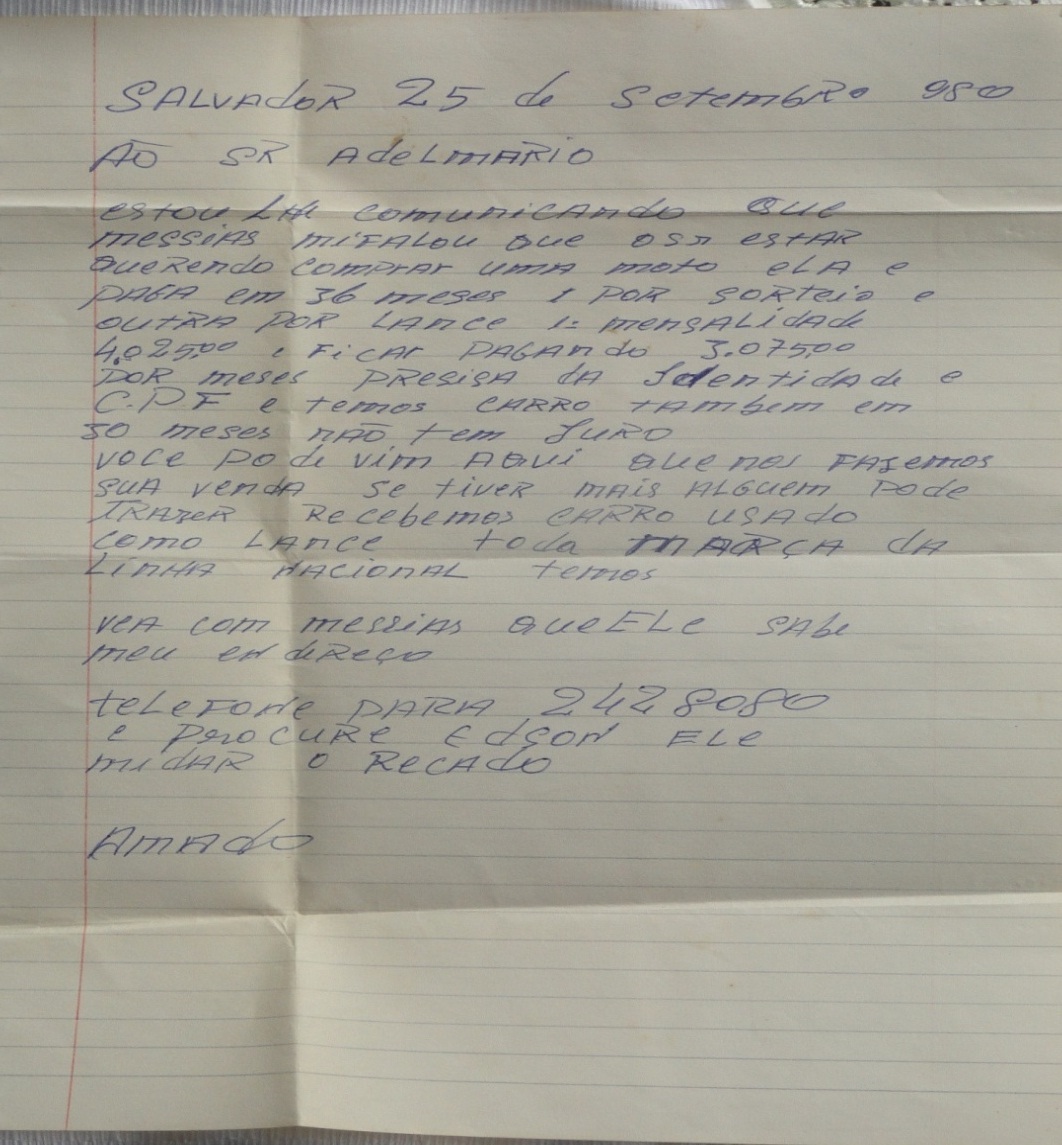 SALVADOR 25 de Setembro 980
AO SR AdeLMARIO
estou LHe comunicando Que
messias miFALou que osr estAR
QueRendo comprar uma moto eLA e
PAGA em 36 meses 1 POR SORTeio e
OUTRA POR LANCE 1= mensALidade
4.025,00 e FicAR PAGANdo 3.075,00
POR meses PResisA dA Identidade e
C.P.F e temos CARRO tAmbem em
50 meses nÃO tem JURO
voce Pode vim AQui que nos FAsemos
SUA venda se tiver mais ALGuem Pode
TRAZER Recebemos CARRO USADO
como LAnce toda MARÇA dA
LiNHA NACIONAL temos
veA com messias queELe SAbe
meu endeReço
teLeFone PARA 2428080
e PROCURE EdSON ELe
midAR o RecAdo
AmAdo